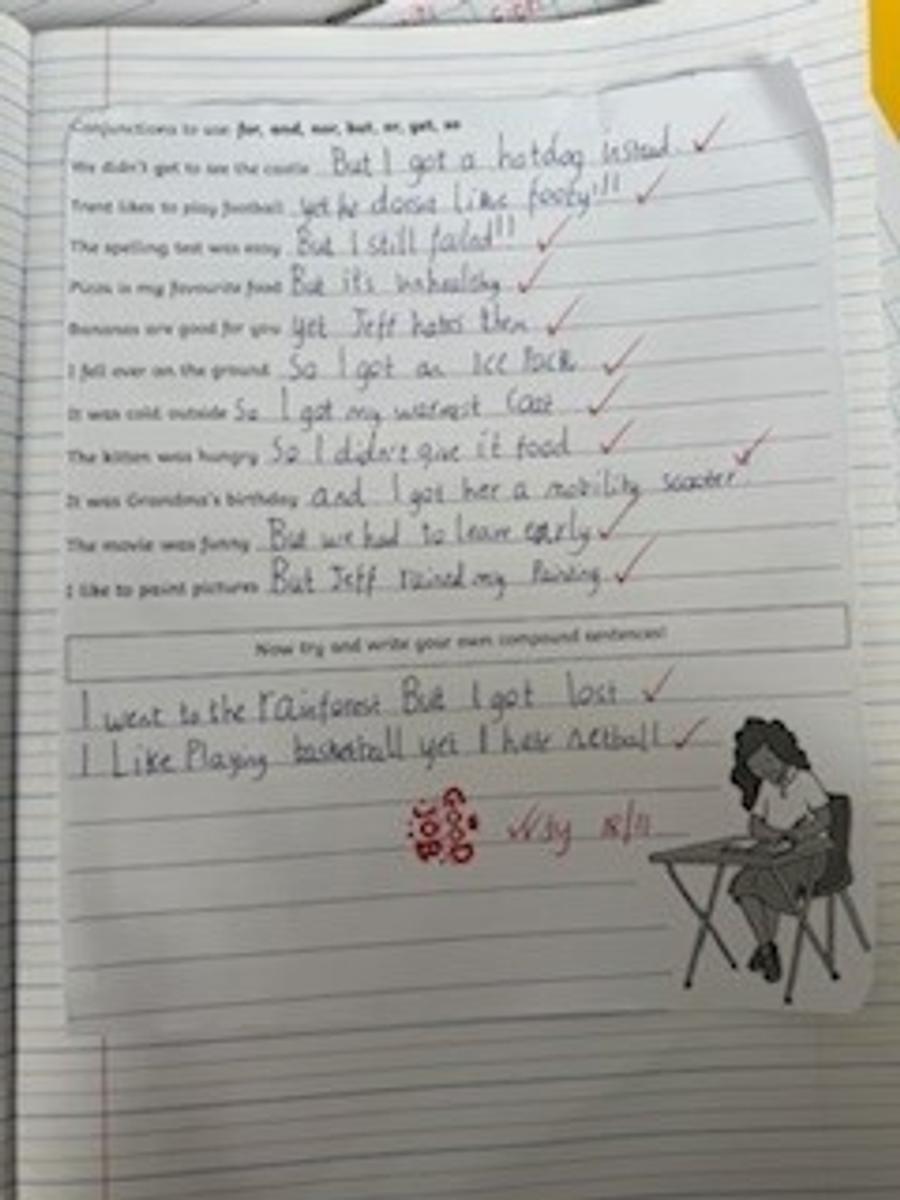 Conjunctions to use: for, and, nor, but, or, yet, so
We didn't get to see the castle But I got a hotdog instead
Trent likes to play football yet he doesnt like footy!!!
The spelling test was easy But I still failed!!
Pizza is my favourite food But it's unhealthy
Bananas are good for you yet Jeff hates them
I fell over on the ground So I got an Ice Pack
It was cold outside So I got my warmest Coat
The kitten was hungry So I didn't give it food
It was Grandma's birthday and I got her a mobility scooter
The movie was funny But we had to leave early
I like to paint pictures But Jeff ruined my Painting
Now try and write your own compound sentences!
I went to the rainforest But I got lost
I Like Playing basketball yet I hate netball
GOOD JOB 18/11